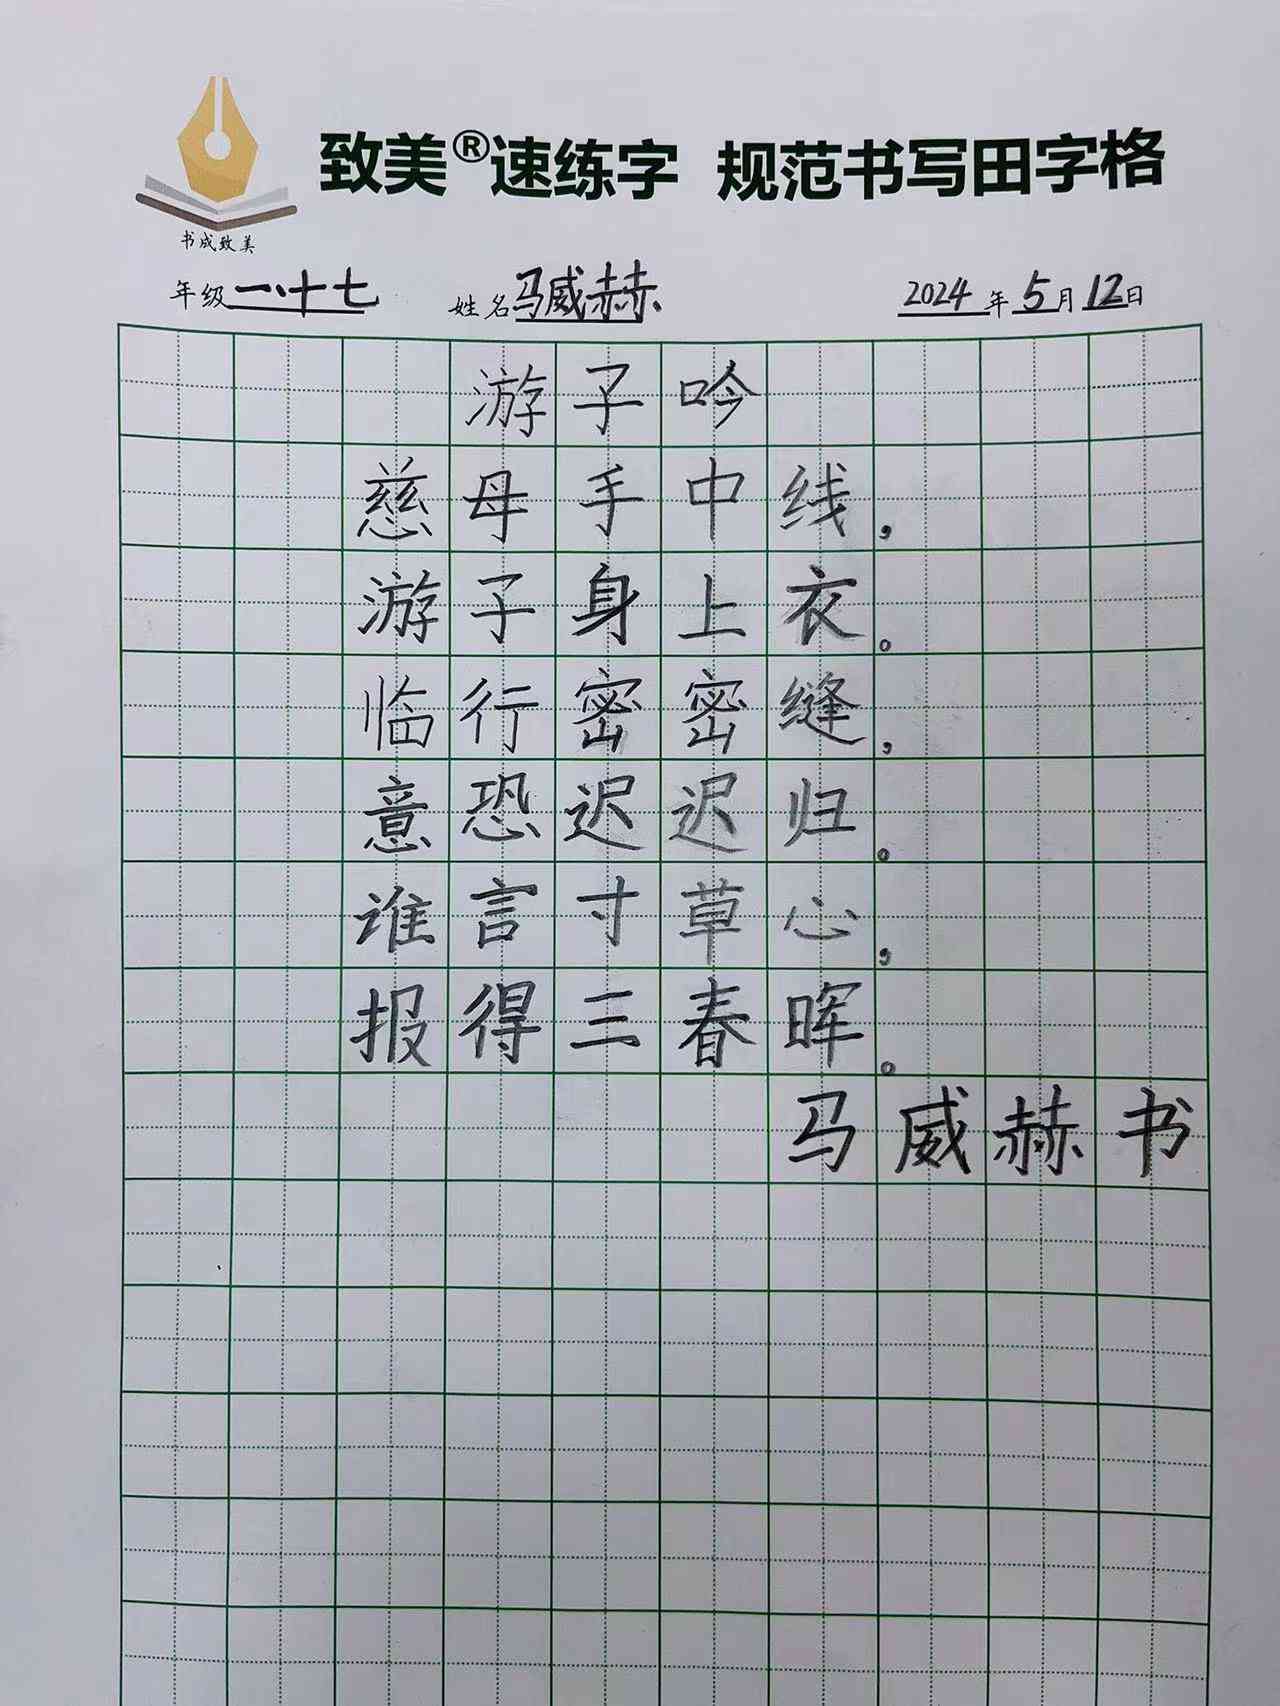 致美®速练字 规范书写田字格
书成致美
年级一、十七 姓名马威赫 2024年5月12日
游子吟
慈母手中线，
游子身上衣。
临行密密缝，
意恐迟迟归。
谁言寸草心，
报得三春晖。
马威赫书